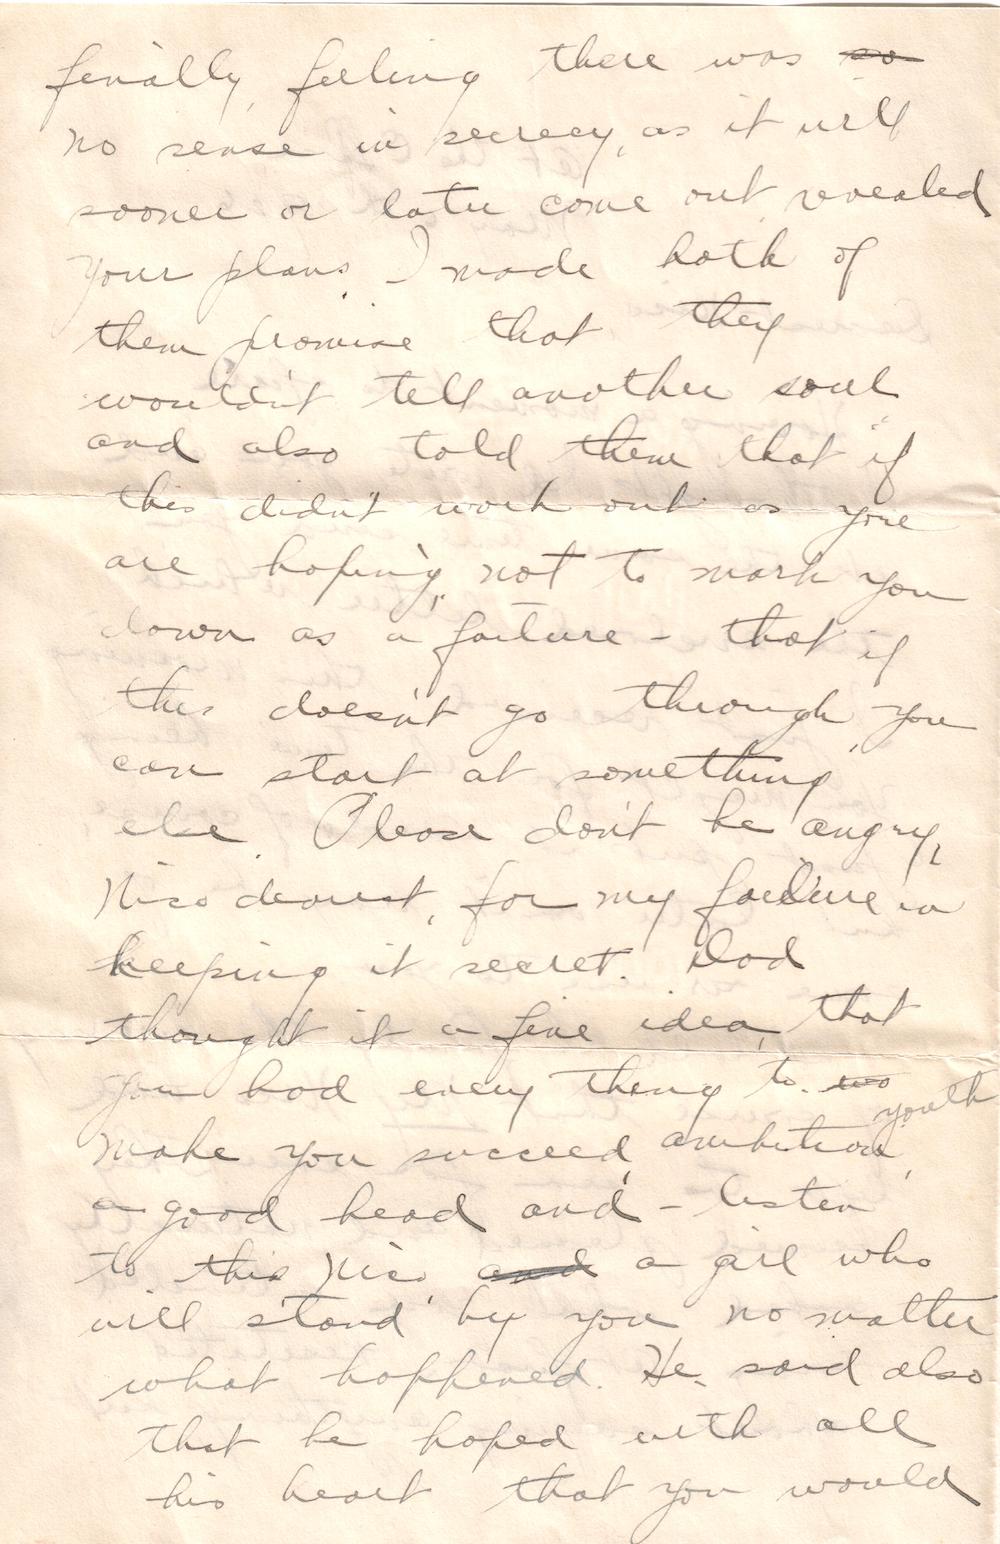 finally, feeling there was ~~so~~
no sense in secrecy, as it will
sooner or later come out, revealed
your plans. I made both of
them promise that they
wouldn't tell another soul
and also told them that if
this didn't work out as you
are hoping, not to mark you
down as a failure - that if
this doesn't go through, you
can start at something
else. Please don't be angry,
Nico dearest, for my failure in
keeping it secret. Dad
thought it a fine idea, that
you had every thing to
make you succeed, ambition, youth
a good head and - listen
to this Nico, ~~and~~ a girl who
will stand by you no matter
what happened. He said also
that he hoped with all
his heart that you would